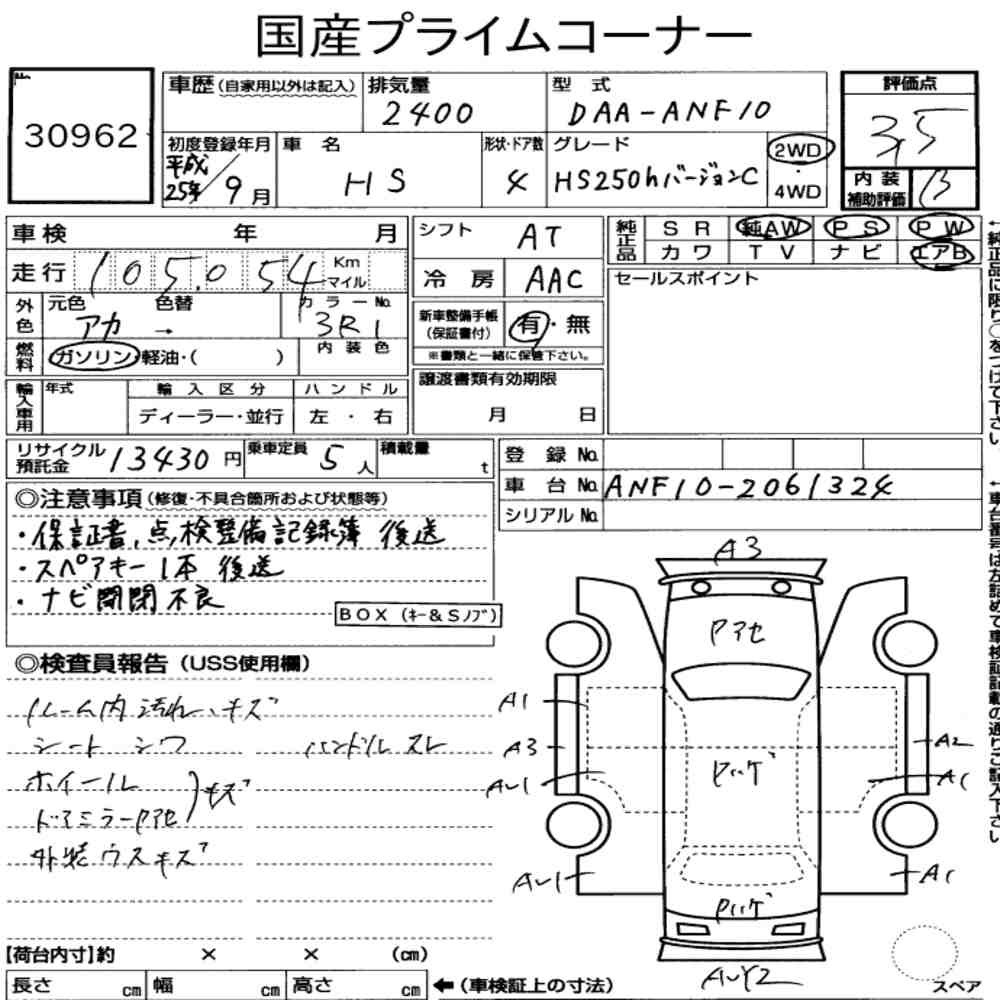 国産プライムコーナー
No.
30962
車歴(自家用以外は記入) 排気量 2400 型式 DAA-ANF10
評価点 3.5
初度登録年月 平成25年/9月 車名 HS 形状・ドア数 4 グレード HS250hバージョンC 2WD・4WD
内装補助評価 B
車検 年 月 シフト AT 純正品 SR 純AW PS PW
カワ TV ナビ エアB
走行 105,054 Km マイル 冷房 AAC セールスポイント
外色 元色 アカ → 色替 カラーNo. 3R1 新車整備手帳(保証書付) 有・無
※書類と一緒に保管下さい。
燃料 ガソリン・軽油・( ) 内装色
譲渡書類有効期限 月 日
輸入車用 年式 輸入区分 ハンドル
ディーラー・並行 左・右
リサイクル預託金 13430円 乗車定員 5人 積載量 t 登録No.
車台No. ANF10-2061324
シリアルNo.
◎注意事項(修復・不具合箇所および状態等)
・保証書、点検整備記録簿 後送
・スペアキー1本 後送
・ナビ開閉不良
BOX(キー&Sノブ)
◎検査員報告(USS使用欄)
ルーム内汚れ、キズ
シート シワ ハンドルスレ
ホイール
ドアミラーPアセ
キズ
外装ウスキズ
A3
Pアセ
A1
A3 A2
AU1 Pハゲ A1
AU1 A1
Pハゲ
AUY2
スペア
【荷台内寸】約 × × (cm)
長さ cm 幅 cm 高さ cm ←(車検証上の寸法)
←純正品に限り○をつけて下さい。
←車台番号は左詰めで車検証記載の通りご記入下さい